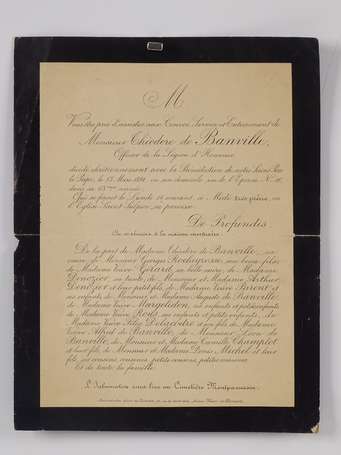 M
Vous êtes prié d'assister aux Convoi, Service et Enterrement de
Monsieur Théodore de Banville,
Officier de la Légion d'Honneur
décédé chrétiennement avec la Bénédiction de notre Saint Père
le Pape, le 13 Mars 1891, en son domicile, rue de l'Éperon N° 10,
dans sa 68ème année.
Qui se feront le Lundi 16 courant, à Midi très précis, en
l'Église Saint Sulpice, sa paroisse.
De Profundis
On se réunira à la maison mortuaire.
De la part de Madame Théodore de Banville, sa
veuve, de Monsieur Georges Rochegrosse, son beau-fils,
de Madame Veuve Gérard, sa belle mère, de Madame
sa tante, de Monsieur et Madame Arthur
et leur petit fils, de Madame Veuve
ses enfants, de Monsieur et Madame Auguste de Banville,
de Madame Veuve ses enfants et petits enfants,
de Madame Veuve ses enfants et petits enfants, de
Madame Veuve et son fils, de Madame
Veuve Alfred de Banville, de Monsieur Léon de
Banville, de Monsieur et Madame Camille Champlot
et leur fils, de Monsieur et Madame Denis Michel et leur
fils, ses cousins, cousines, petits cousins, petites cousines
Et de toute la famille.
L'Inhumation aura lieu au Cimetière Montparnasse.